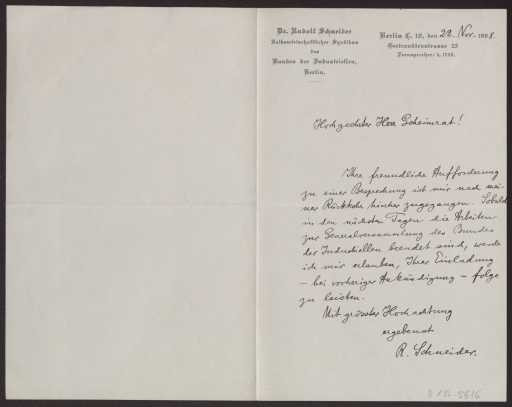 Dr. Rudolf Schneider
Volkswirtschaftlicher Syndikus
des
Bundes der Industriellen,
Berlin.
Berlin C. 19, den 22. Nov. 1908.
Gertraudtenstrasse
Fernsprecher: I,
Hochgeehrter Herr Geheimrat!
Ihre freundliche Aufforderung
zu einer Besprechung ist mir nach mei-
ner Rückkehr hierher zugegangen. Sobald
in den nächsten Tagen die Arbeiten
zur Generalversammlung des Bundes
der Industriellen beendet sind, werde
ich mir erlauben, Ihrer Einladung
– bei vorheriger Ankündigung – folge
zu leisten.
Mit grösster Hochachtung
ergebenst
R. Schneider.